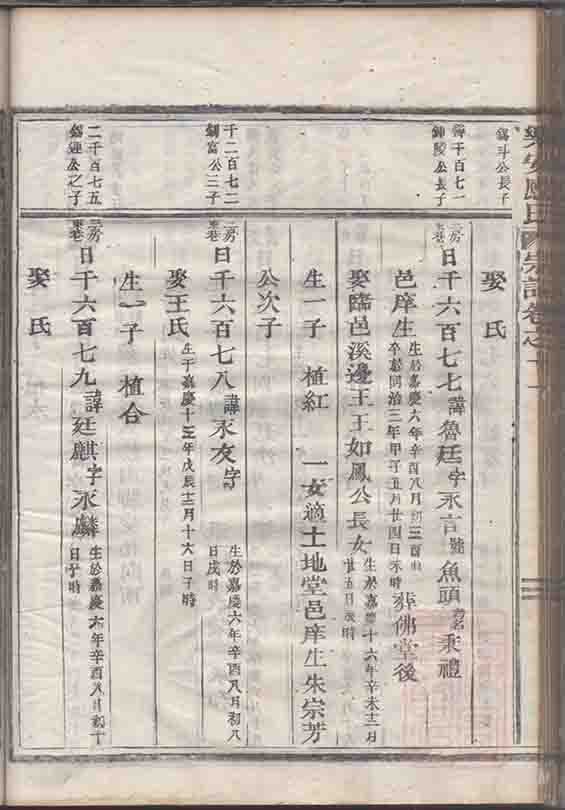 樂安
氏
宗譜卷之
公長子
娶 氏
千百七一
公長子
二房
東巷
日千六百七七諱魯廷字永言號魚頭
秉禮
邑庠生
生於嘉慶六年辛酉八月初三酉時
卒於同治三年甲子五月廿四日未時
葬佛堂後
娶臨邑溪邊王王如鳳公長女
生於嘉慶十六年辛未十二月
廿五日辰時
生一子 植紅 一女適土地堂邑庠生朱宗芳
公次子
千二百七二
富公三子
二房
東巷
日千六百七八諱永友字
生於嘉慶六年辛酉八月初八
日戌時
娶王氏
生于嘉慶十三年戊辰十二月十六日子時
生一子 植合
二千百七五
公之子
二房
東巷
日千六百七九諱廷麒字永麟
生於嘉慶六年辛酉八月初十
日子時
娶 氏